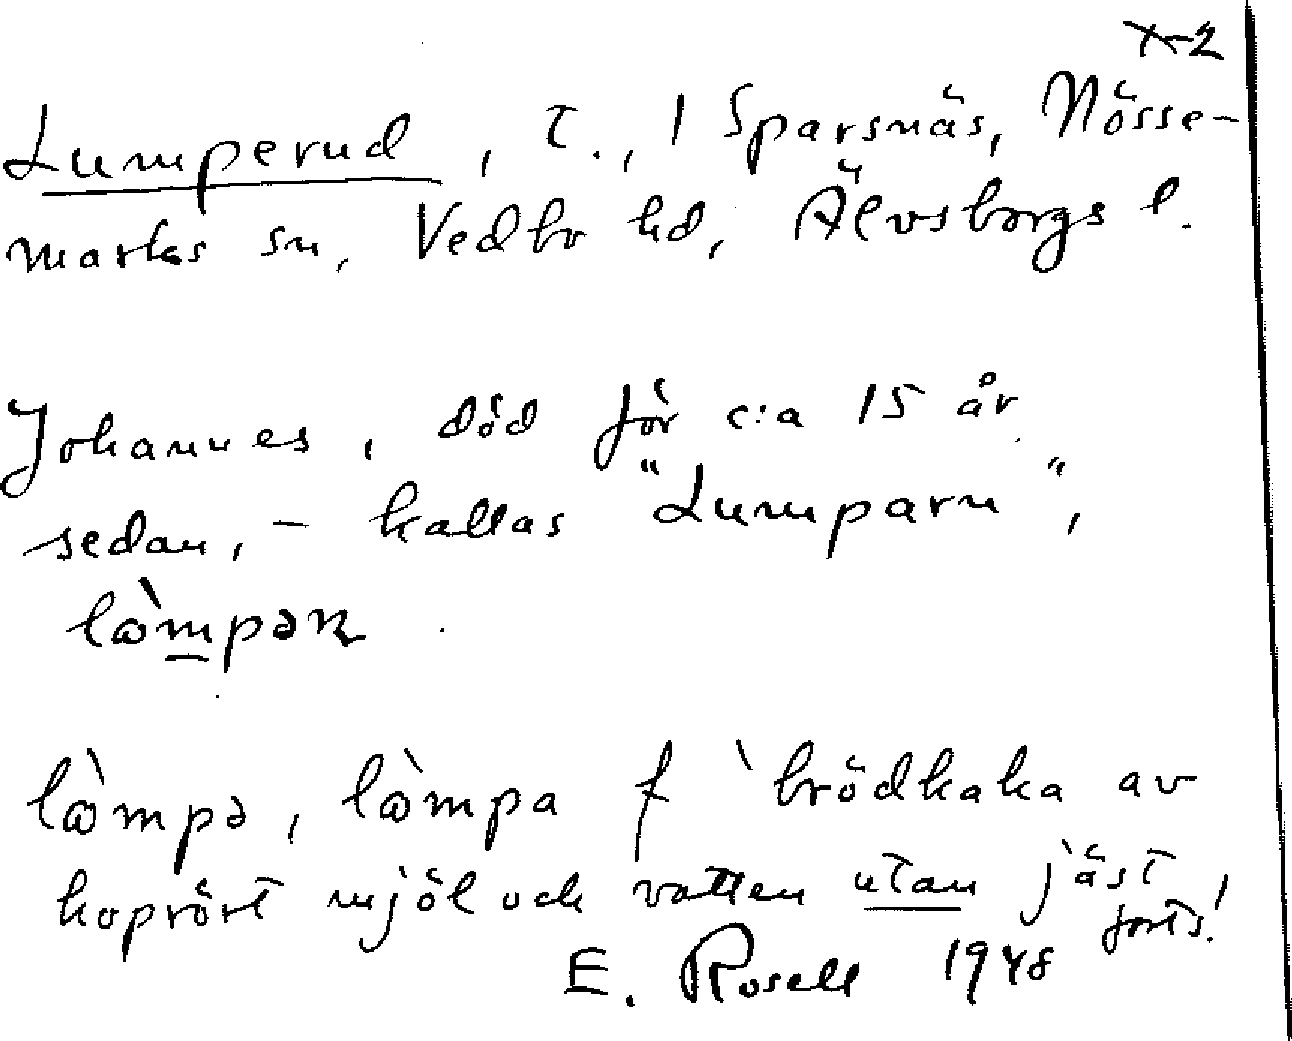 X-2
Lumperud, t., i Sparsnäs, Nösse-
marks sn, Vedbo hd, Älvsborgs l.
Johannes, död för c:a 15 år
sedan, – kallas "Lumparn",
lòmpaɳ
lòmpə, lòmpa f `brödkaka av
hoprört mjöl och vatten utan jäst
forts!
E. Rosell 1948